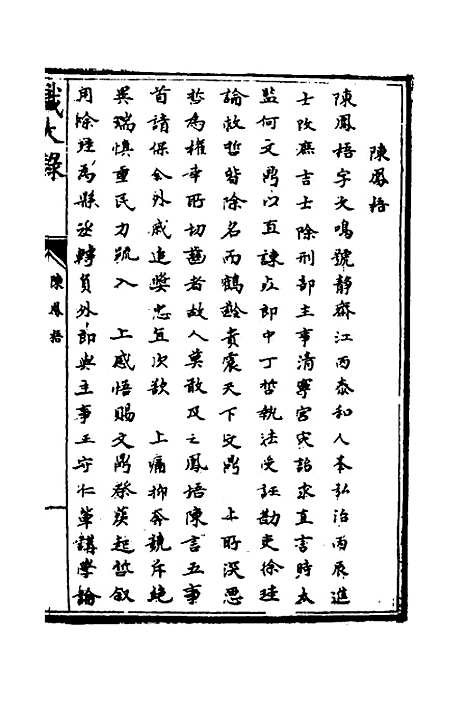 陳鳳梧
陳鳳梧字文鳴號靜齋江西泰和人本弘治丙辰進
士改庶吉士除刑部主事清寧宮災詔求直言時太
監何文鼎以直諫死郎中丁哲執法受誣勘吏徐珪
論救哲皆除名而鶴齡貴震天下文鼎 上所深思
哲為權幸所切齒者故人莫敢及之鳳梧陳言五事
首請保全外戚追獎忠直次欲 上痛抑奔競斥絕
異瑞慎重民力疏入 上感悟賜文鼎祭葬起哲敘
用除珪為縣丞轉員外郎與主事王守仁輩講學論
識大錄
陳鳳梧